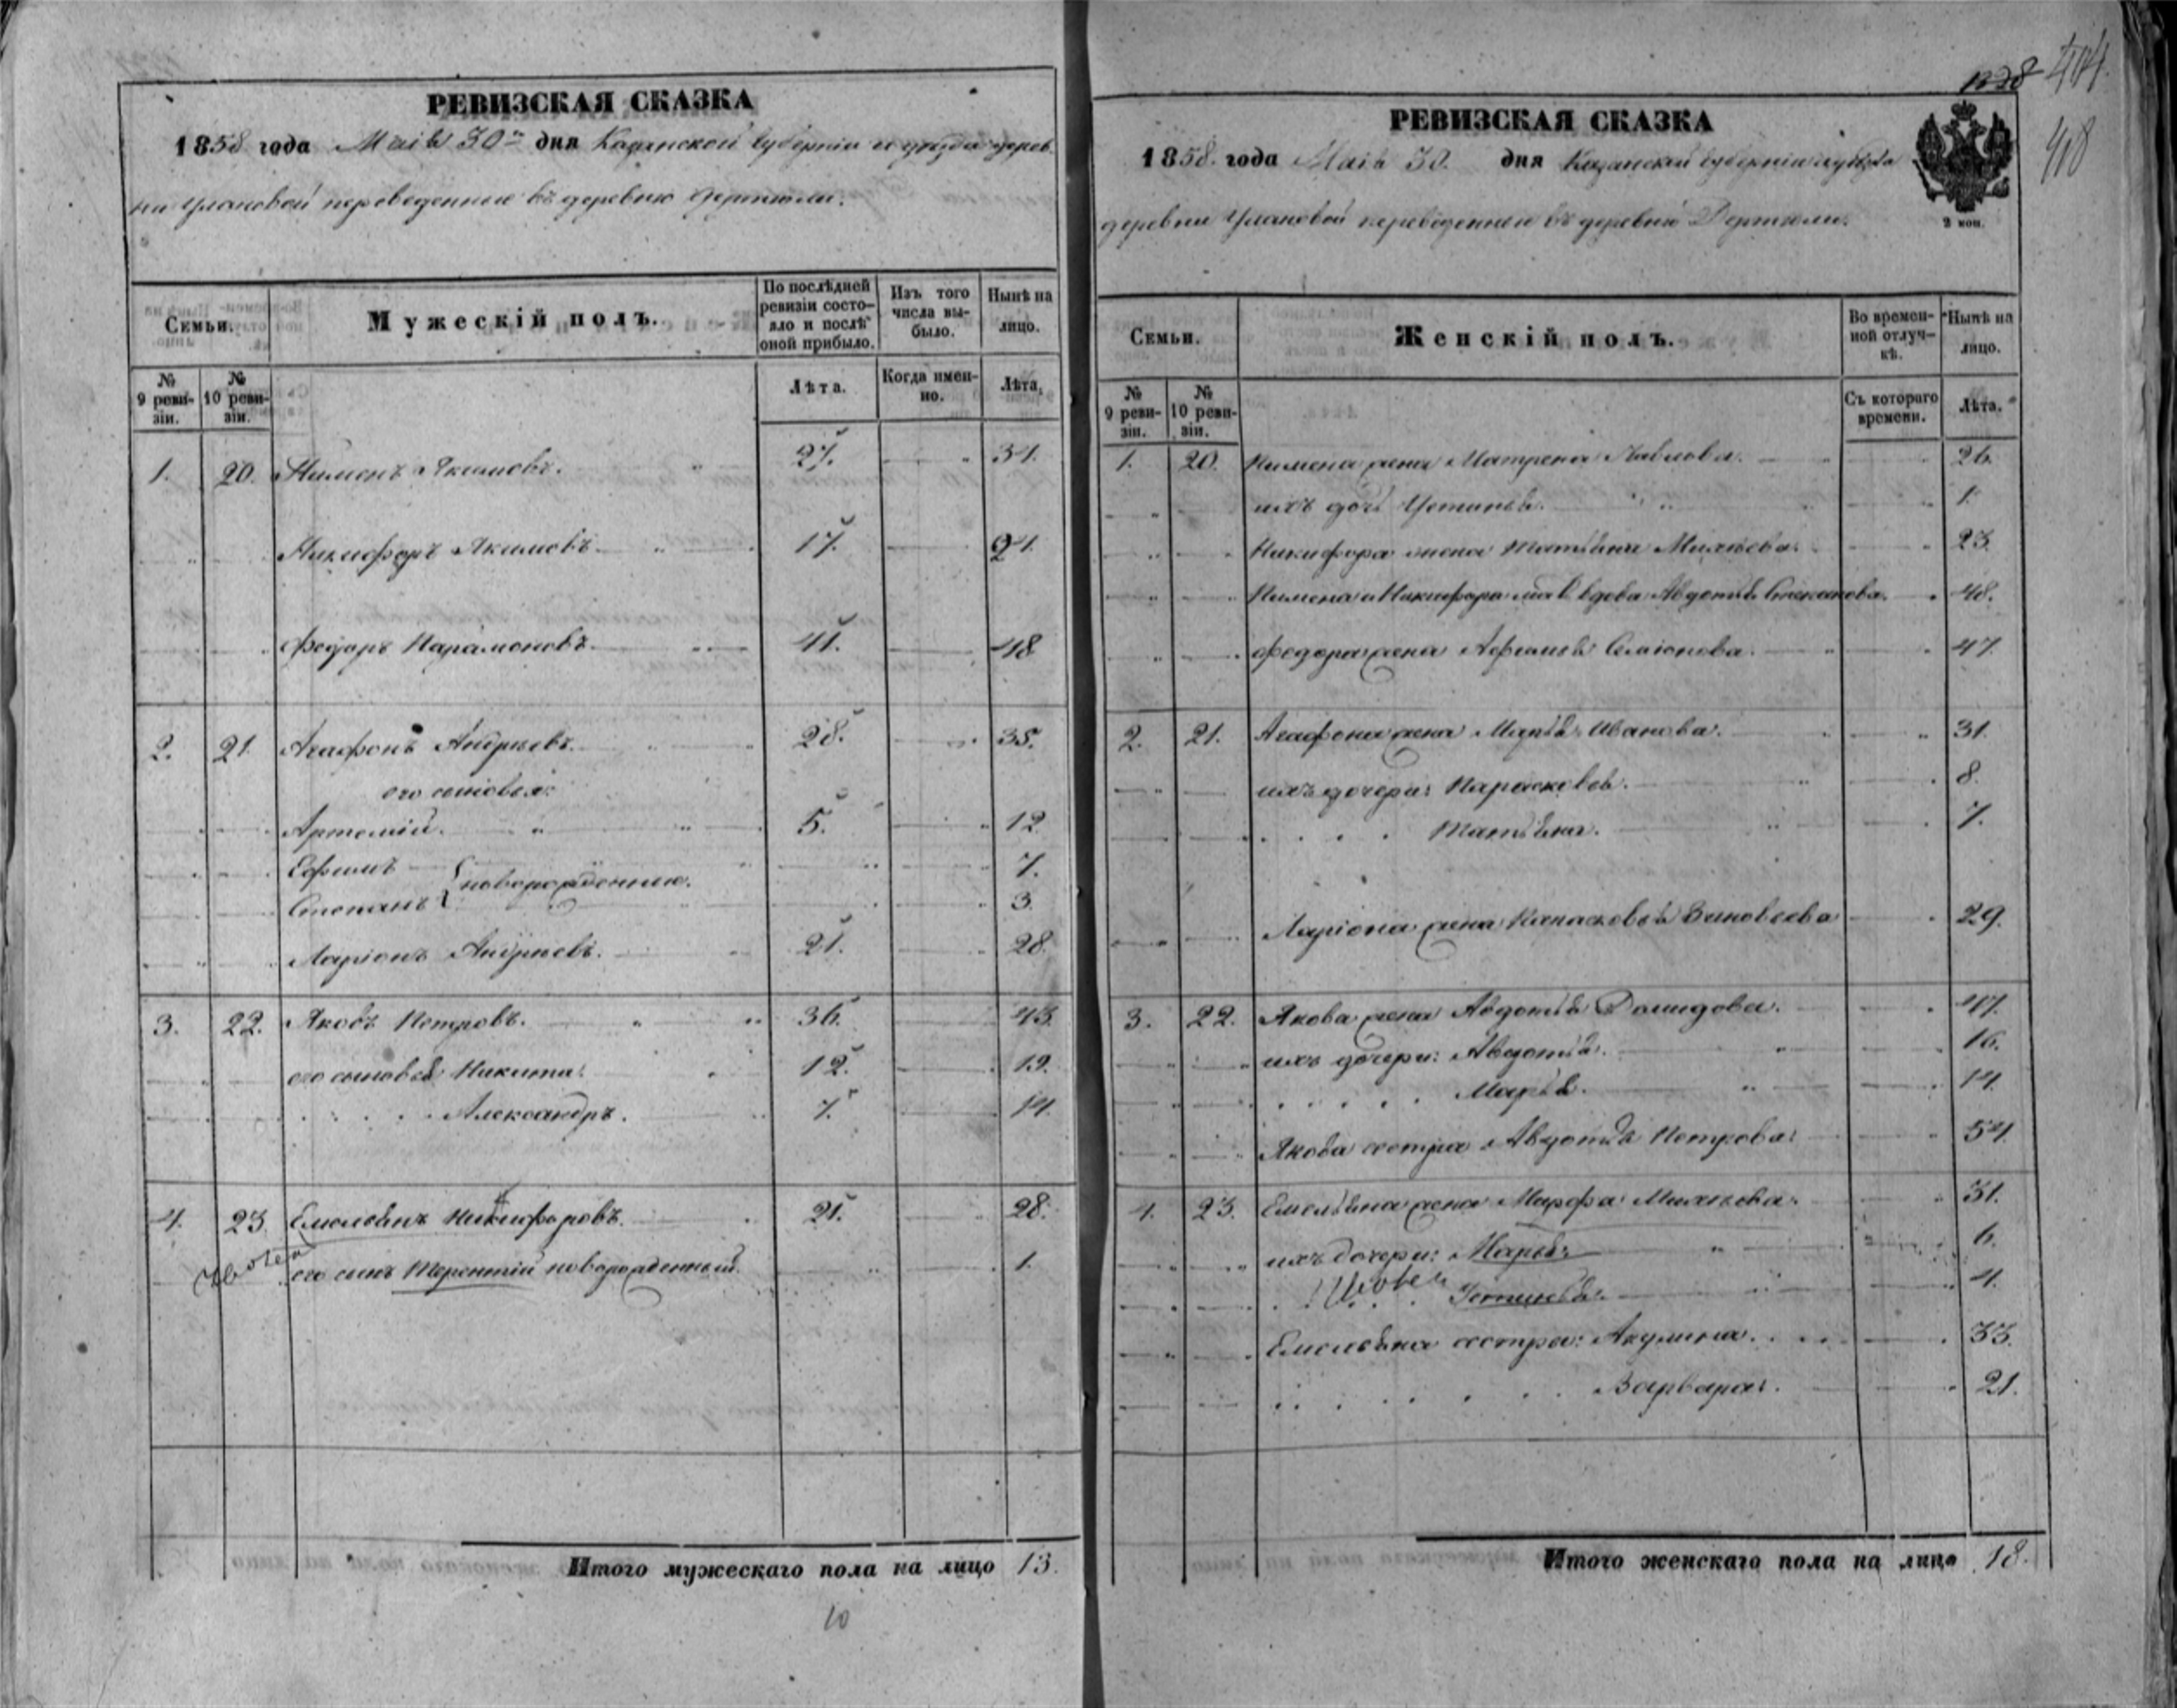 РЕВИЗСКАЯ СКАЗКА
1858 года Маія 30го дня Казанской Губерніи и уѣзда дерев
ни Улановой переведенные въ деревню Дертюли.
Семьи.
Мужескій полъ.
По послѣдней ревизіи состояло и послѣ оной прибыло.
Изъ того числа выбыло.
Нынѣ на лицо.
№ 9 ревизіи.
№ 10 ревизіи.
Лѣта.
Когда именно.
Лѣта.
1. 20. Пименъ Якимовъ. 27. 34.
Никифоръ Якимовъ. 17. 24.
Федоръ Парамоновъ. 41. 48
2. 21. Агафонъ Андреевъ. 28. 35.
его сыновья:
Артемій. 5. 12.
Ефимъ 7.
Степанъ новорожденные. 3.
Ларіонъ Андреевъ. 21. 28.
3. 22. Яковъ Петровъ. 36. 43.
его сыновья Никита. 12. 19.
Александръ. 7. 14.
4. 23. Емельянъ Никифоровъ. 21. 28.
его сынъ Терентій новорожденный. 1.
Итого мужескаго пола на лицо 13.
10
404.
1228
418
РЕВИЗСКАЯ СКАЗКА
1858 года Маія 30. дня Казанской Губерніи и уѣзда
деревни Улановой переведенные въ деревню Дертюли.
2 коп.
Семьи.
Женскій полъ.
Во временной отлучкѣ.
Нынѣ на лицо.
№ 9 ревизіи.
№ 10 ревизіи.
Съ котораго времени.
Лѣта.
1. 20. Пимена жена Матрена Павлова. 26.
ихъ дочь Устинья. 1.
Никифора жена Татьяна Михѣева. 23.
Пимена и Никифора мать вдова Авдотья Степанова. 48.
Федора жена Афимья Семіонова. 47.
2. 21. Агафона жена Марья Иванова. 31.
ихъ дочери: Парасковья. 8.
Татьяна. 7.
Ларіона жена Парасковья Зиновьева 29.
3. 22. Якова жена Авдотья Демидова. 47.
ихъ дочери: Авдотья. 16.
Марья. 14.
Якова сестра Авдотья Петрова. 54.
4. 23. Емельяна жена Марфа Михѣева. 31.
ихъ дочери: Марья 6.
Устинья. 4.
Емельяна сестра: Акулина. 33.
Варвара. 21.
Итого женскаго пола на лицо 18.